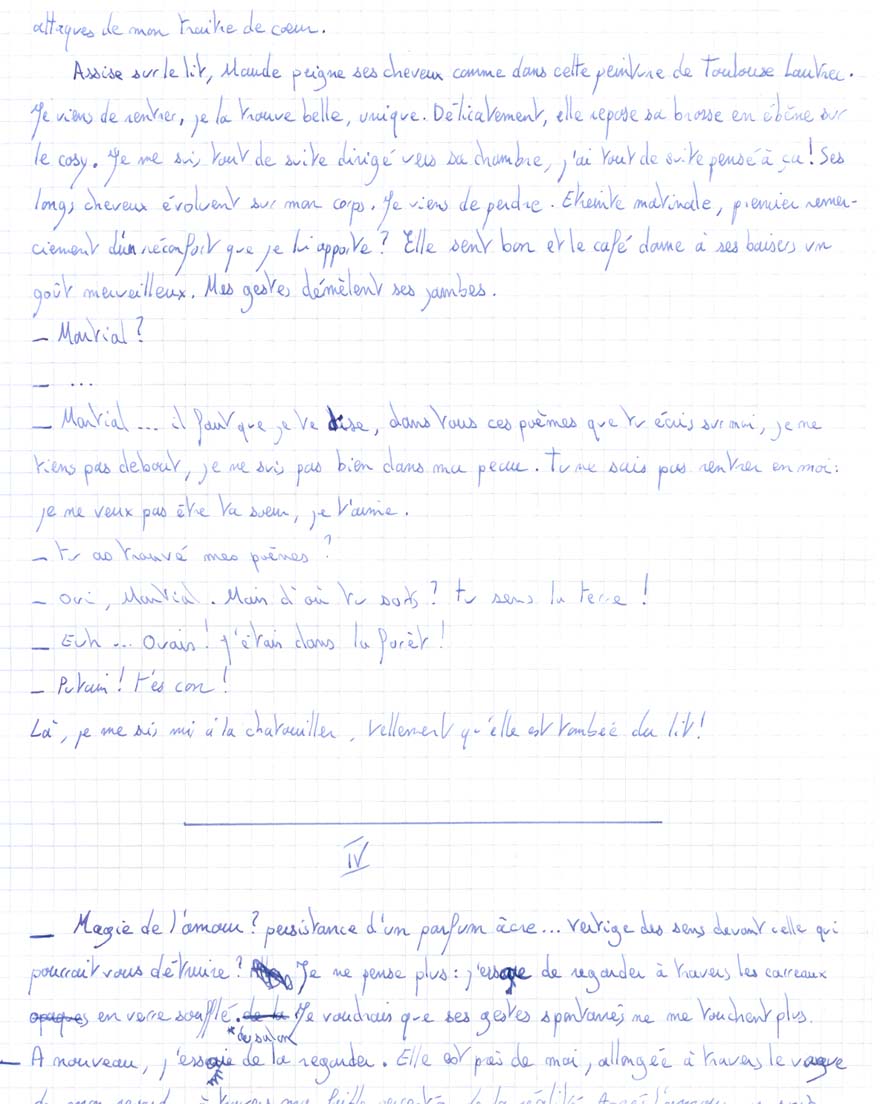 attaques de mon traître de cœur.
Assise sur le lit, Maude peigne ses cheveux comme dans cette peinture de Toulouse Lautrec.
Je viens de rentrer, je la trouve belle, unique. Délicatement, elle repose sa brosse en ébène sur
le cosy. Je me suis tout de suite dirigé vers sa chambre, j'ai tout de suite pensé à ça ! Ses
longs cheveux évoluent sur mon corps. Je viens de perdre. Etreinte matinale, premier remer-
ciement d'un réconfort que je lui apporte ? Elle sent bon et le café donne à ses baisers un
goût merveilleux. Mes gestes démêlent ses jambes.
– Martial ?
– ...
– Martial ... il faut que je te dise, dans tous ces poèmes que tu écris sur moi, je ne
tiens pas debout, je ne suis pas bien dans ma peau. Tu ne sais pas rentrer en moi :
je ne veux pas être ta sœur, je t'aime.
– tu as trouvé mes poèmes ?
– Oui, Martial. Mais d'où tu sors ? tu sens la terre !
– Euh ... Ouais ! j'étais dans la forêt !
– Putain ! t'es con !
Là, je me suis mis à la chatouiller, tellement qu'elle est tombée du lit !
IV
– Magie de l'amour ? persistance d'un parfum âcre ... vertige des sens devant celle qui
pourrait vous détruire ? Je ne pense plus : j'essaie de regarder à travers les carreaux
opaques en verre soufflé. de la Je voudrais que ses gestes spontanés ne me touchent plus.
* du salon
– A nouveau, j'essaie de la regarder. Elle est près de moi, allongée à travers le vague
de mon regard, à travers ma faible de la réalité. Après l'amour,